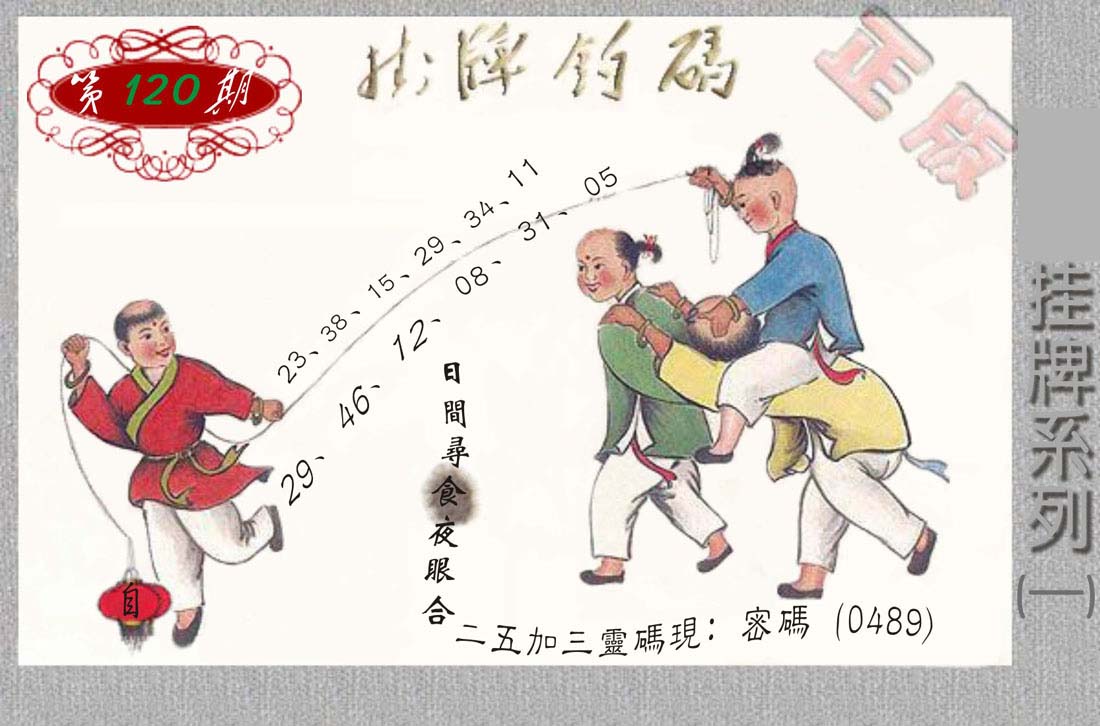 第 120 期
掛牌釣碼
正版
23、38、15、29、34、11
29、46、12、08、31、05
日間尋食夜眼合
自
二五加三靈碼現：密碼 (0489)
挂牌系列(一)